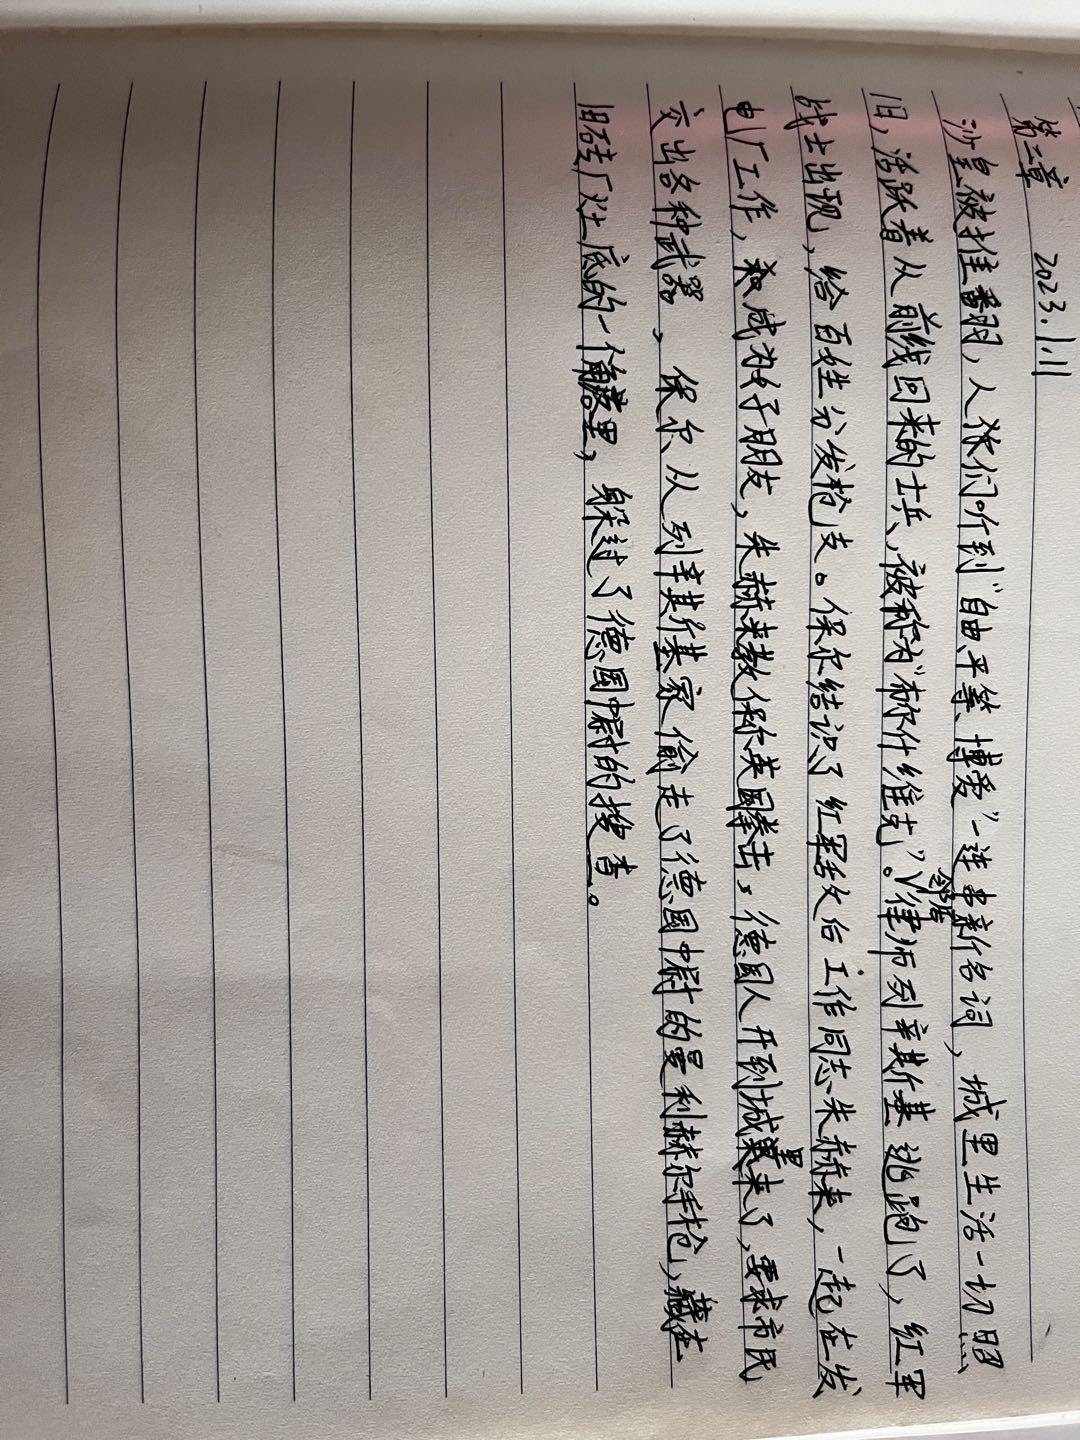 第二章 2023.1.11
沙皇被推翻，人们听到“自由、平等、博爱”一连串新名词，城里生活一切照
旧，活跃着从前线回来的士兵，被称为“布尔什维克”。邻居律师列辛斯基逃跑了，红军
战士出现，给百姓分发枪支。保尔结识了红军敌后工作同志朱赫来，一起在发
电厂工作，成为好朋友，朱赫来教保尔英国拳击，德国人开到城里来了，要求市民
交出各种武器，保尔从列辛斯基家偷走了德国中尉的曼利赫尔手枪，藏在
旧砖厂灶底的一个角落里，躲过了德国中尉的搜查。